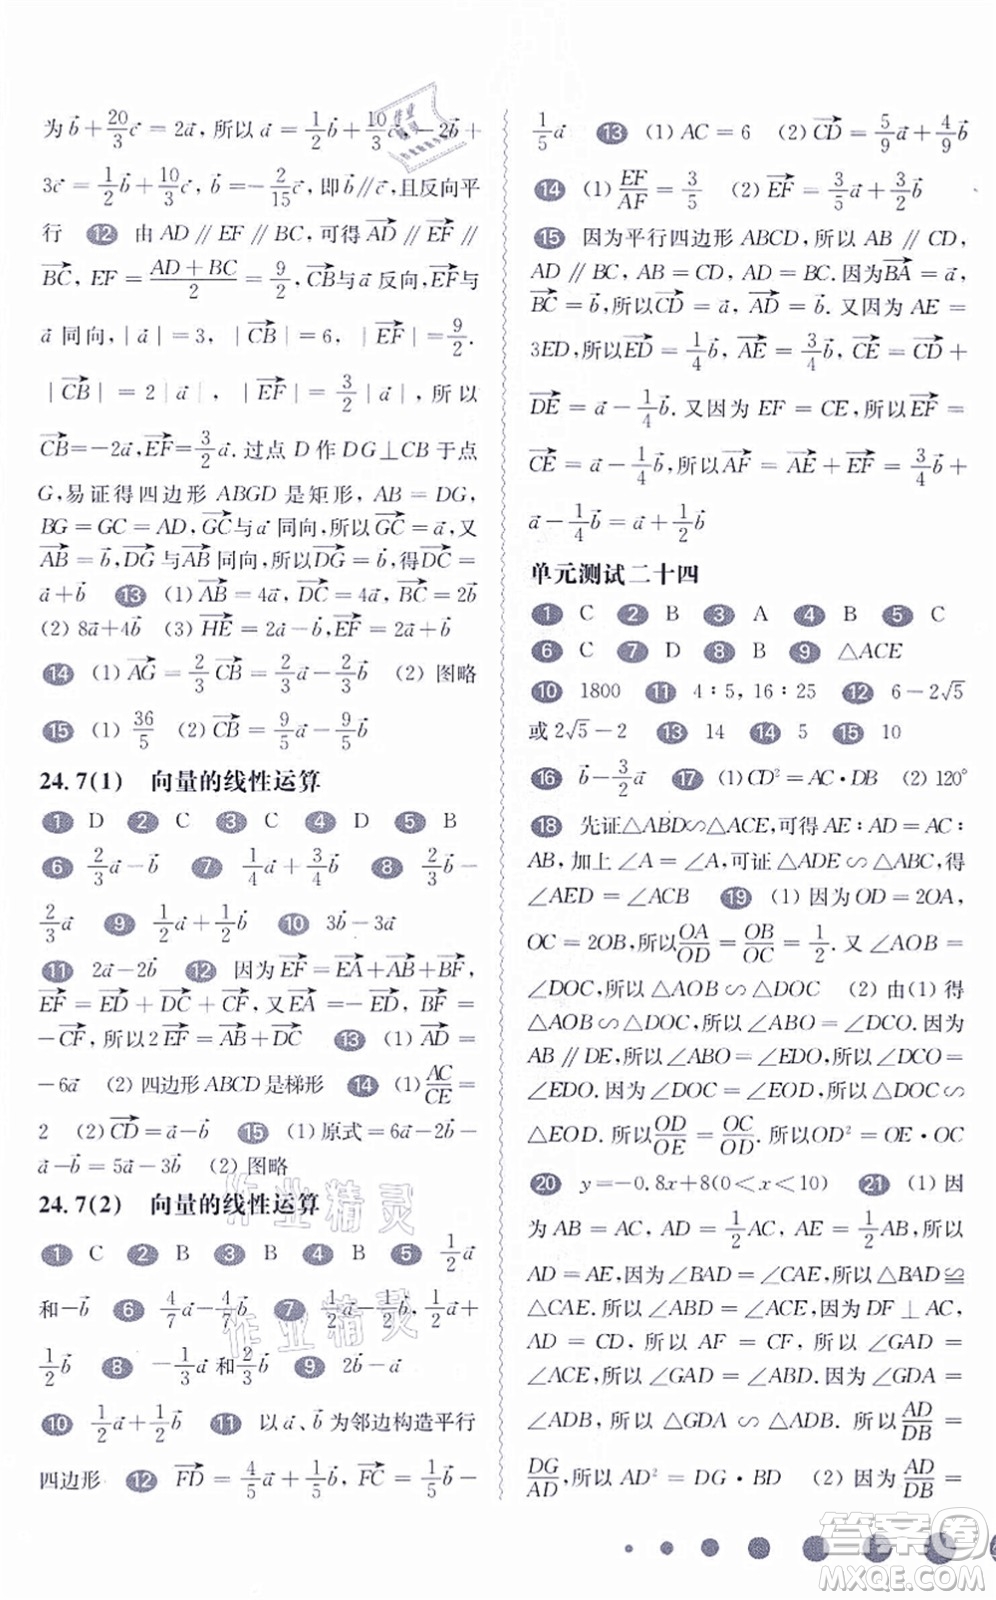 为b⃗+20/3 c⃗=2a⃗,所以a⃗=1/2 b⃗+10/3 c⃗-2b⃗+
3c⃗=1/2 b⃗+10/3 c⃗,b⃗=-2/15 c⃗,即b⃗∥c⃗,且反向平
行 12 由AD∥EF∥BC,可得AD⃗∥EF⃗∥
BC⃗,EF=(AD+BC)/2=9/2,CB⃗与a⃗反向,EF⃗与
a⃗同向,|a⃗|=3,|CB⃗|=6,|EF⃗|=9/2.
|CB⃗|=2|a⃗|,|EF⃗|=3/2|a⃗|,所以
CB⃗=-2a⃗,EF⃗=3/2 a⃗.过点D作DG⊥CB于点
G,易证得四边形ABGD是矩形,AB=DG,
BG=GC=AD,GC⃗与a⃗同向,所以GC⃗=a⃗,又
AB⃗=b⃗,DG⃗与AB⃗同向,所以DG⃗=b⃗,得DC⃗=
a⃗+b⃗ 13 (1) AB⃗=4a⃗,DC⃗=4a⃗,BC⃗=2b⃗
(2) 8a⃗+4b⃗ (3) HE⃗=2a⃗-b⃗,EF⃗=2a⃗+b⃗
14 (1) AG⃗=2/3 CB⃗=2/3 a⃗-2/3 b⃗ (2) 图略
15 (1) 36/5 (2) CB⃗=9/5 a⃗-9/5 b⃗
24.7(1) 向量的线性运算
1 D 2 C 3 C 4 D 5 B
6 2/3 a⃗-b⃗ 7 1/4 a⃗+3/4 b⃗ 8 b⃗-
2/3 a⃗ 9 1/2 a⃗+1/2 b⃗ 10 3b⃗-3a⃗
11 2a⃗-2b⃗ 12 因为EF⃗=EA⃗+AB⃗+BF⃗,
EF⃗=ED⃗+DC⃗+CF⃗,又EA⃗=-ED⃗,BF⃗=
-CF⃗,所以2EF⃗=AB⃗+DC⃗ 13 (1) AD⃗=
-6a⃗ (2) 四边形ABCD是梯形 14 (1) AC/CE=
2 (2) CD⃗=a⃗-b⃗ 15 (1) 原式=6a⃗-2b⃗-
a⃗-b⃗=5a⃗-3b⃗ (2) 图略
24.7(2) 向量的线性运算
1 C 2 B 3 B 4 B 5 1/2 a⃗
和-b⃗ 6 4/7 a⃗-9/7 b⃗ 7 1/2 a⃗-b⃗,1/4 a⃗+
1/2 b⃗ 8 -1/3 a⃗和3/2 b⃗ 9 2b⃗-a⃗
10 1/2 a⃗+1/2 b⃗ 11 以a⃗、b⃗为邻边构造平行
四边形 12 FD⃗=4/5 a⃗+1/5 b⃗,FC⃗=1/5 b⃗-
1/5 a⃗ 13 (1) AC=6 (2) CD⃗=5/9 a⃗+4/9 b⃗
14 (1) EF/AF=3/5 (2) EF⃗=3/5 a⃗+3/2 b⃗
15 因为平行四边形ABCD,所以AB∥CD,
AD∥BC,AB=CD,AD=BC.因为BA⃗=a⃗,
BC⃗=b⃗,所以CD⃗=a⃗,AD⃗=b⃗.又因为AE=
3ED,所以ED⃗=1/4 b⃗,AE⃗=3/4 b⃗,CE⃗=CD⃗+
DE⃗=a⃗-1/4 b⃗.又因为EF=CE,所以EF⃗=
CE⃗=a⃗-1/4 b⃗,所以AF⃗=AE⃗+EF⃗=3/4 b⃗+
a⃗-1/4 b⃗=a⃗+1/2 b⃗
单元测试二十四
1 C 2 B 3 A 4 B 5 C
6 C 7 D 8 B 9 △ACE
10 1800 11 4∶5,16∶25 12 6-2√5
或2√5-2 13 14 14 5 15 10
16 b⃗-3/2 a⃗ 17 (1) CD²=AC·DB (2) 120°
18 先证△ABD∽△ACE,可得AE∶AD=AC∶
AB,加上∠A=∠A,可证△ADE∽△ABC,得
∠AED=∠ACB 19 (1) 因为OD=2OA,
OC=2OB,所以OA/OD=OB/OC=1/2.又∠AOB=
∠DOC,所以△AOB∽△DOC (2) 由(1)得
△AOB∽△DOC,所以∠ABO=∠DCO.因为
AB∥DE,所以∠ABO=∠EDO,所以∠DCO=
∠EDO.因为∠DOC=∠EOD,所以△DOC∽
△EOD.所以OD/OE=OC/OD.所以OD²=OE·OC
20 y=-0.8x+8(0<x<10) 21 (1) 因
为AB=AC,AD=1/2 AC,AE=1/2 AB,所以
AD=AE,因为∠BAD=∠CAE,所以△BAD≌
△CAE.所以∠ABD=∠ACE,因为DF⊥AC,
AD=CD,所以AF=CF,所以∠GAD=
∠ACE,所以∠GAD=∠ABD.因为∠GDA=
∠ADB,所以△GDA∽△ADB.所以AD/DB=
DG/AD,所以AD²=DG·BD (2) 因为AD/DB=
作业精灵
作业精灵
答案圈
MXQE.COM